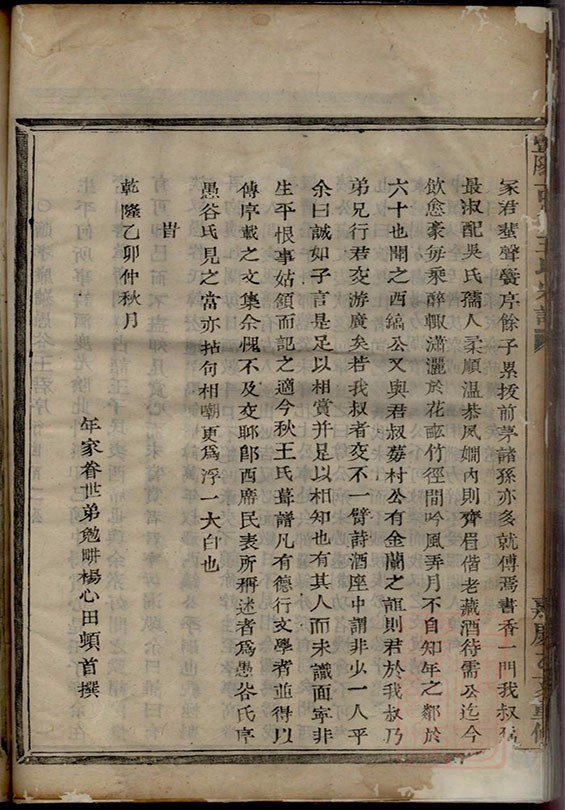 冢君蜚聲黌序餘子累拔前茅諸孫亦多就傅焉書香一門我叔
最淑配吳氏孺人柔順溫恭夙嫻內則齊眉偕老藏酒待需公迄今
飲愈豪每乘醉輙瀟灑於花茵竹徑間吟風弄月不自知年之鄰於
六十也聞之西縞公又與君叔荔村公有金蘭之誼則君於我叔乃
弟兄行君交游廣矣若我叔者交不一臂詩酒座中謂非少一人乎
余曰誠如子言是足以相賞并足以相知也有其人而未識面寧非
生平恨事姑領而記之適今秋王氏葺譜凡有德行文學者並得以
傳序載之文集余愧不及交耶卽西席民表所稱述者爲愚谷氏序
愚谷氏見之當亦拈句相嘲更爲浮一大白也
旹
乾隆乙卯仲秋月
年家眷世弟勉畊楊心田頓首撰
王氏宗譜
嘉慶乙亥重修